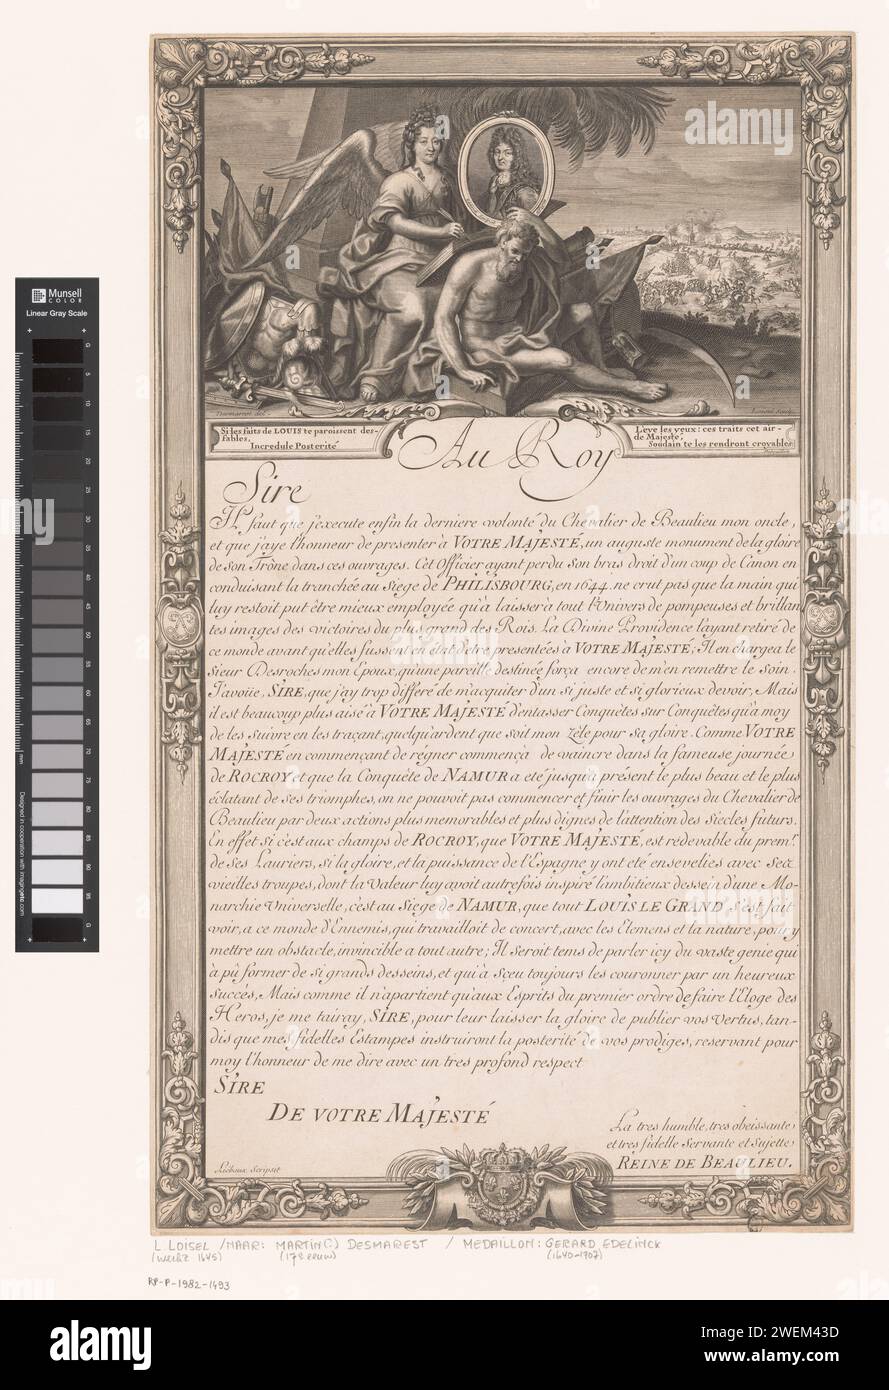 Munsell
COLOR
Linear Gray Scale
Desmarest del.
Loisel Sculp.
Si les faits de LOUIS te paroissent des
fables,
Incredule Posterité
Leve les yeux: ces traits cet air
de Majesté,
Soudain te les rendront croyables
Au Roy
Sire
Il faut que j'execute enfin la derniere volonté du Chevalier de Beaulieu mon oncle,
et que j'aye l'honneur de presenter à VOTRE MAJESTÉ, un auguste monument de la gloire
de son Trône dans ces ouvrages. Cet Officier ayant perdu son bras droit d'un coup de Canon en
conduisant la tranchée au siege de PHILISBOURG, en 1644. ne crut pas que la main qui
luy restoit put être mieux employée qu'à laisser à tout l'Univers de pompeuses et brillan
tes images des victoires du plus grand des Rois. La Divine Providence l'ayant retiré de
ce monde avant qu'elles fussent en état d'etre presentées à VOTRE MAJESTÉ; Il en chargea le
sieur Desroches mon Epoux, qu'une pareille destinée força encore de m'en remettre le soin.
J'avoüe, SIRE, que j'ay trop differé de m'acquiter d'un si juste et si glorieux devoir, Mais
il est beaucoup plus aisé à VOTRE MAJESTÉ d'entasser Conquêtes sur Conquêtes qu'a moy
de les suivre en les traçant, quelqu'ardent que soit mon zèle pour sa gloire. Comme VOTRE
MAJESTÉ en commençant de régner commença de vaincre dans la fameuse journée
de ROCROY et que la Conquête de NAMUR a eté jusqu'a présent le plus beau et le plus
éclatant de ses triomphes, on ne pouvoit pas commencer et finir les ouvrages du Chevalier de
Beaulieu par deux actions plus memorables et plus dignes de l'attention des siecles futurs.
En effet si c'est aux champs de ROCROY, que VOTRE MAJESTÉ, est rédevable du prem.r
de ses Lauriers, si la gloire, et la puissance de l'Espagne y ont eté ensevelies avec ses
vieilles troupes, dont la valeur luy avoit autrefois inspiré l'ambitieux dessein d'une Mo-
narchie Universelle, c'est au Siege de NAMUR, que tout LOUIS LE GRAND s'est fait
voir, a ce monde d'Ennemis, qui travailloit de concert, avec les Elemens et la nature, pour y
mettre un obstacle, invincible a tout autre; Il seroit tems de parler icy du vaste genie qui
à pû former de si grands desseins, et qui à sçeu toujours les couronner par un heureux
succès, Mais comme il n'apartient qu'aux Esprits du premier ordre de faire l'Eloge des
Heros, je me tairay, SIRE, pour leur laisser la gloire de publier vos vertus, tan-
dis que mes fidelles Estampes instruiront la posterité de vos prodiges, reservant pour
moy l'honneur de me dire avec un tres profond respect
SIRE
DE VOTRE MAJESTÉ
La tres humble, tres obeissante,
et tres fidelle Servante et Sujette,
REINE DE BEAULIEU.
Richoux Scripsit
L LOISEL / NAAR: MARTIN(?) DESMAREST / MEDAILLON: GERARD EDELINCK
(werkz 1645) (17e eeuw) (1640-1707)
RP-P-1982-1493
alamy
alamy
alamy
Image ID: 2WEM43D
www.alamy.com